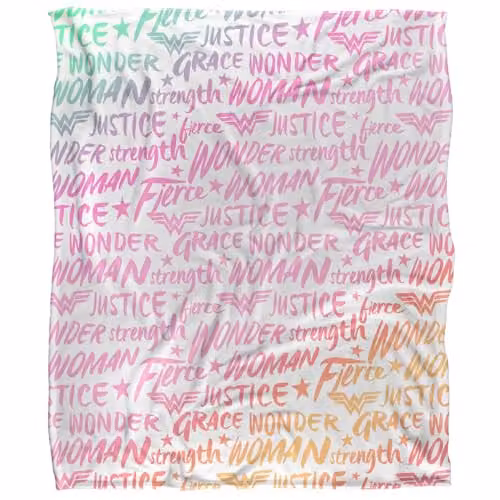 Fierce JUSTICE Fierce JUSTICE
CE WONDER GRACE WONDER GRACE
WOMAN strength WOMAN strength WOM
JUSTICE fierce JUSTICE fierce
WONDER strength WONDER strength WONDER
WOMAN Fierce WOMAN Fierce WOM
STICE JUSTICE JUSTICE
E WONDER GRACE WONDER GRACE WO
WOMAN strength WOMAN strength WOM
JUSTICE fierce JUSTICE fierce
WONDER strength WONDER strength WONDER
WOMAN Fierce WOMAN Fierce WOM
STICE JUSTICE JUSTICE
CE WONDER GRACE WONDER GRACE WO
WOMAN strength WOMAN strength WOM
JUSTICE fierce JUSTICE fierce